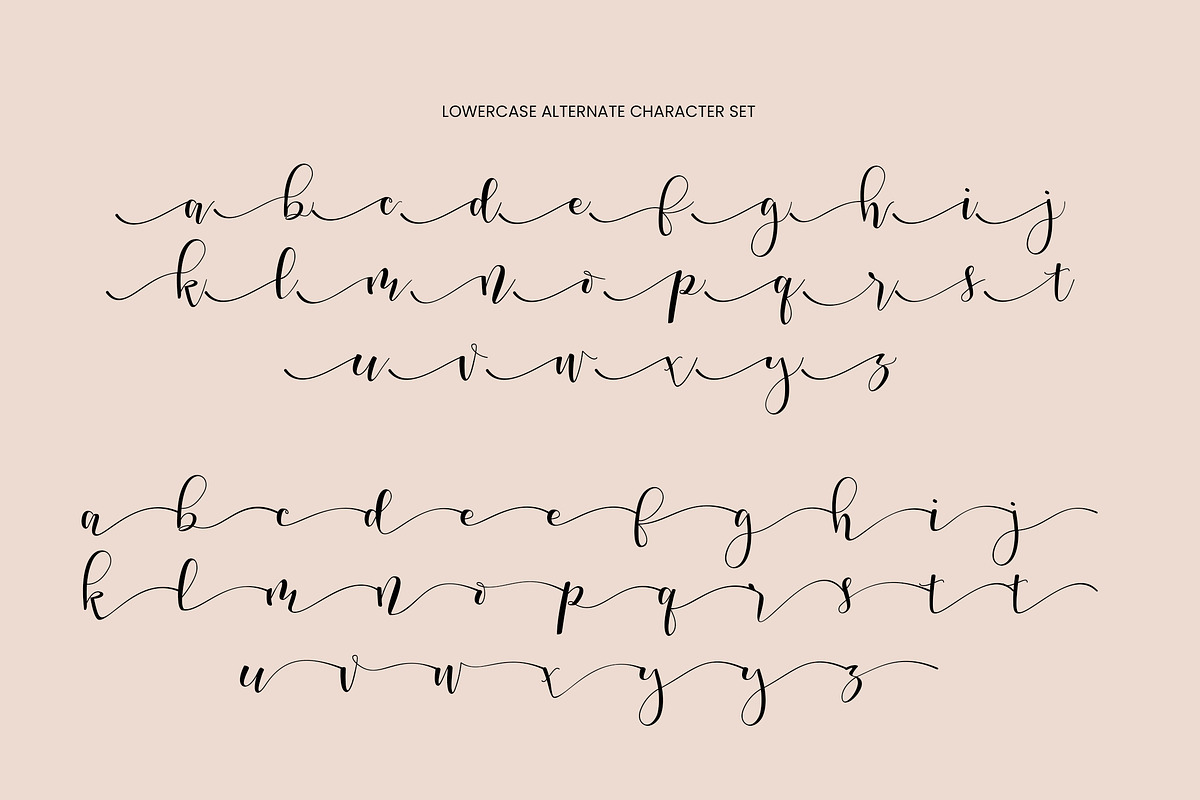 LOWERCASE ALTERNATE CHARACTER SET
a b c d e f g h i j
k l m n o p q r s t
u v w x y z
a b c d e e f g h i j
k l m n o p q r s t t
u v w x y y z